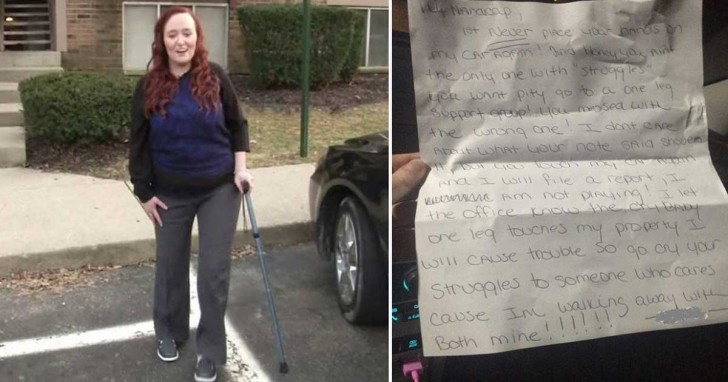 Hey Handicap,
1st Never place your hands on
my car again! 2nd honey you not
the only one with "struggles"
You want pity go to a one leg
support group! You messed with
the wrong one! I don't care
about what your note said shove
it, but you touch my car again
and I will file a report, I
am not playing! I let
the office know the cry baby
one leg touches my property I
will cause trouble so go cry your
struggles to someone who cares
cause I'm walking away with
Both mine!!!!!!